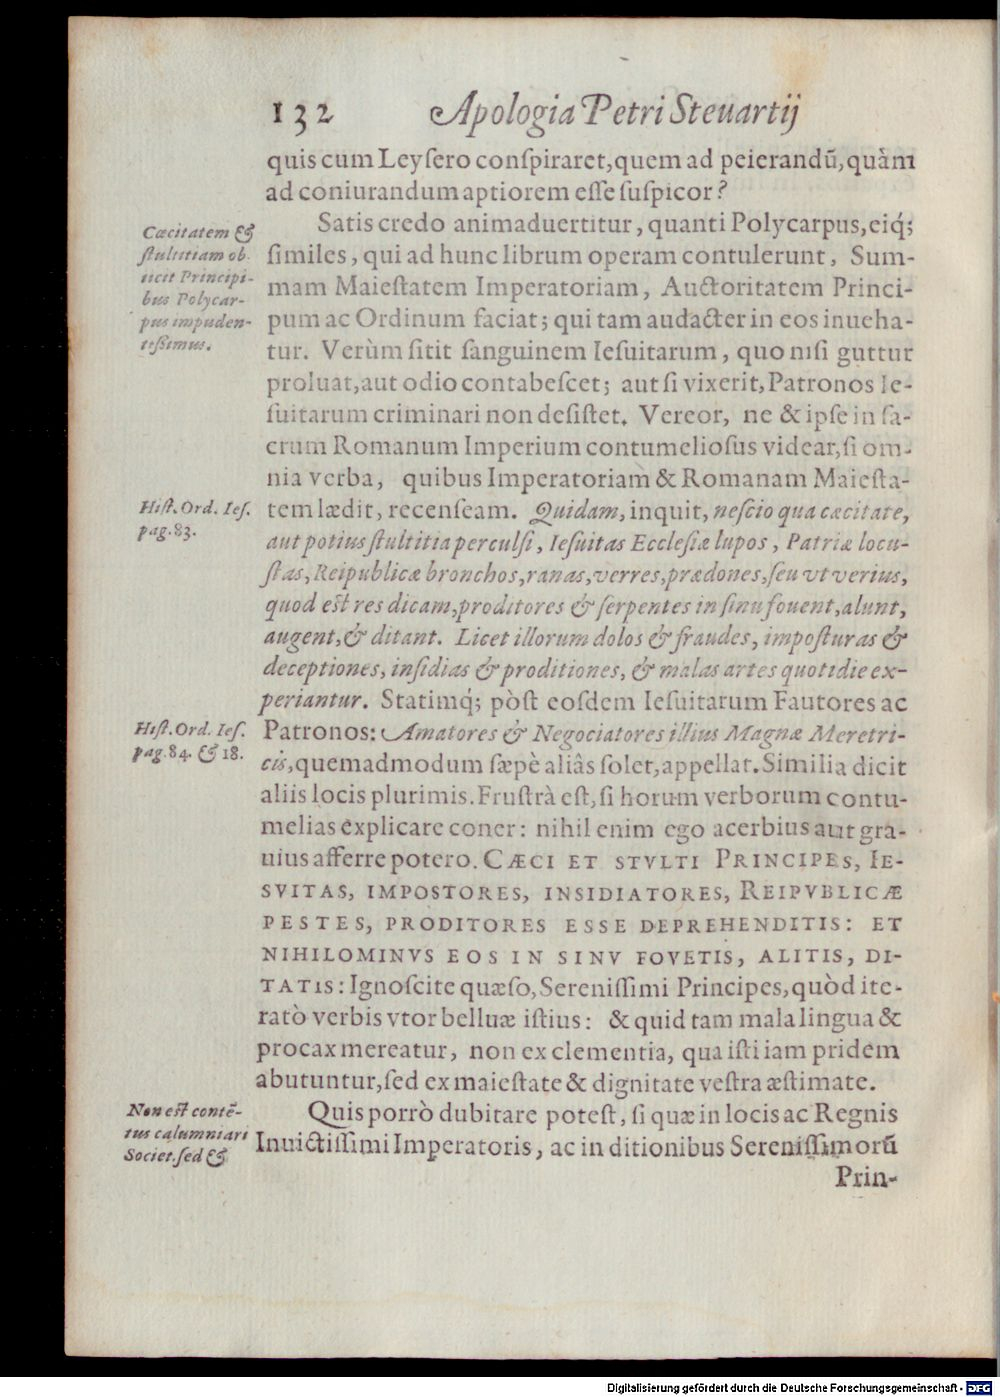 132 Apologia Petri Steuartij
quis cum Leyſero conſpiraret, quem ad peierandũ, quàm
ad coniurandum aptiorem eſſe ſuſpicor?
Satis credo animaduertitur, quanti Polycarpus, eiq́;
ſimiles, qui ad hunc librum operam contulerunt, Sum-
mam Maieſtatem Imperatoriam, Auctoritatem Princi-
pum ac Ordinum faciat; qui tam audacter in eos inueha-
tur. Verùm ſitit ſanguinem Ieſuitarum, quo niſi guttur
proluat, aut odio contabeſcet; aut ſi vixerit, Patronos Ie-
ſuitarum criminari non deſiſtet. Vereor, ne & ipſe in ſa-
crum Romanum Imperium contumelioſus videar, ſi om-
nia verba, quibus Imperatoriam & Romanam Maieſta-
tem lædit, recenſeam. Quidam, inquit, neſcio qua cæcitate,
aut potius ſtultitia perculſi, Ieſuitas Eccleſiæ lupos, Patriæ locu-
ſtas, Reipublicæ bronchos, ranas, verres, prædones, ſeu vt verius,
quod eſt res dicam, proditores & ſerpentes in ſinu fouent, alunt,
augent, & ditant. Licet illorum dolos & fraudes, impoſturas &
deceptiones, inſidias & proditiones, & malas artes quotidie ex-
periantur. Statimq́; pòſt eoſdem Ieſuitarum Fautores ac
Patronos: Amatores & Negociatores illius Magnæ Meretri-
cis, quemadmodum ſæpè aliâs ſolet, appellat. Similia dicit
aliis locis plurimis. Fruſtrà eſt, ſi horum verborum contu-
melias explicare coner: nihil enim ego acerbius aut gra-
uius afferre potero. CÆCI ET STVLTI PRINCIPES, IE-
SVITAS, IMPOSTORES, INSIDIATORES, REIPVBLICÆ
PESTES, PRODITORES ESSE DEPREHENDITIS: ET
NIHILOMINVS EOS IN SINV FOVETIS, ALITIS, DI-
TATIS: Ignoſcite quæſo, Sereniſſimi Principes, quòd ite-
ratò verbis vtor belluæ iſtius: & quid tam mala lingua &
procax mereatur, non ex clementia, qua iſti iam pridem
abutuntur, ſed ex maieſtate & dignitate veſtra æſtimate.
Quis porrò dubitare poteſt, ſi quæ in locis ac Regnis
Inuictiſſimi Imperatoris, ac in ditionibus Sereniſſimorũ
Prin-
Cæcitatem &
ſtultitiam ob-
iicit Principi-
bus Polycar-
pus impuden-
tiſſimus.
Hiſt. Ord. Ieſ.
pag. 83.
Hiſt. Ord. Ieſ.
pag. 84. & 18.
Non eſt contẽ-
tus calumniari
Societ. ſed &
Digitalisierung gefördert durch die Deutsche Forschungsgemeinschaft - DFG